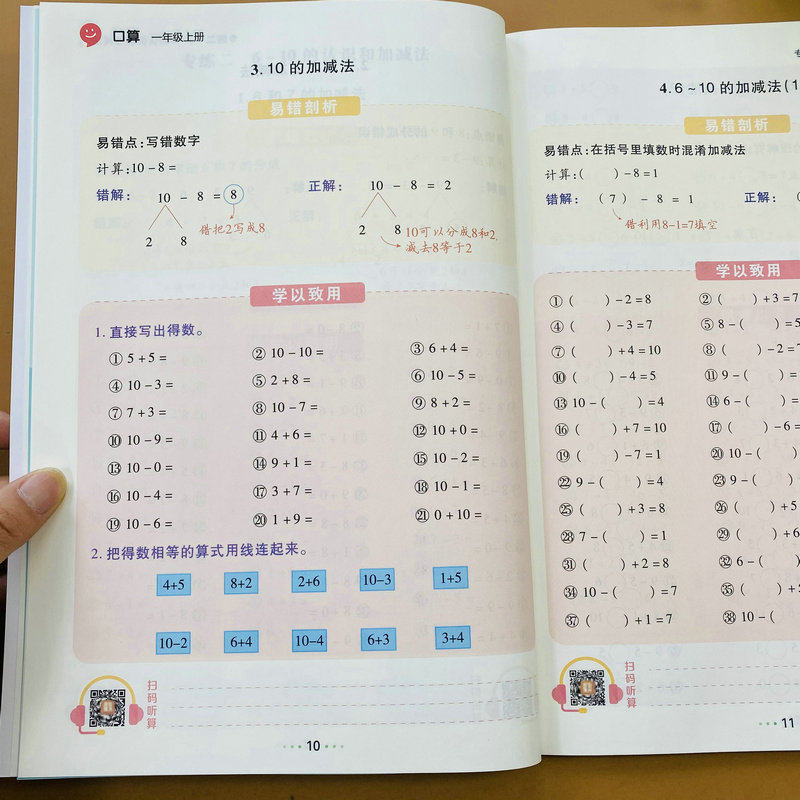 口算 一年级上册
3.10的加减法
易错剖析
易错点:写错数字
计算:10-8=
错解: 10 - 8 = 8
2 8
错把2写成8
正解: 10 - 8 = 2
2 8
10可以分成8和2,
减去8等于2
学以致用
1.直接写出得数。
①5+5= ②10-10= ③6+4=
④10-3= ⑤2+8= ⑥10-5=
⑦7+3= ⑧10-7= ⑨8+2=
⑩10-9= ⑪4+6= ⑫10+0=
⑬10-0= ⑭9+1= ⑮10-2=
⑯10-4= ⑰3+7= ⑱10-1=
⑲10-6= ⑳1+9= ㉑0+10=
2.把得数相等的算式用线连起来。
4+5 8+2 2+6 10-3 1+5
10-2 6+4 10-4 6+3 3+4
扫码听算
10
4.6~10的加减法(1
易错剖析
易错点:在括号里填数时混淆加减法
计算:( )-8=1
错解: (7) - 8 = 1
错利用8-1=7填空
正解: (
学以致用
①( )-2=8 ②( )+3=7
④( )-3=7 ⑤8-( )=
⑦( )+4=10 ⑧( )-2=7
⑩( )-4=5 ⑪9-( )=
⑬10-( )=4 ⑭6-( )=
⑯( )+7=10 ⑰( )-6=
⑲( )-7=1 ⑳10-( )
㉒9-( )=4 ㉓9-( )=
㉕( )+3=8 ㉖( )+5
㉘7-( )=1 ㉙( )+6
㉛( )+2=8 ㉜6-( )
㉞10-( )=7 ㉟( )+
㊲( )+1=7 ㊳10-(
扫码听算
11